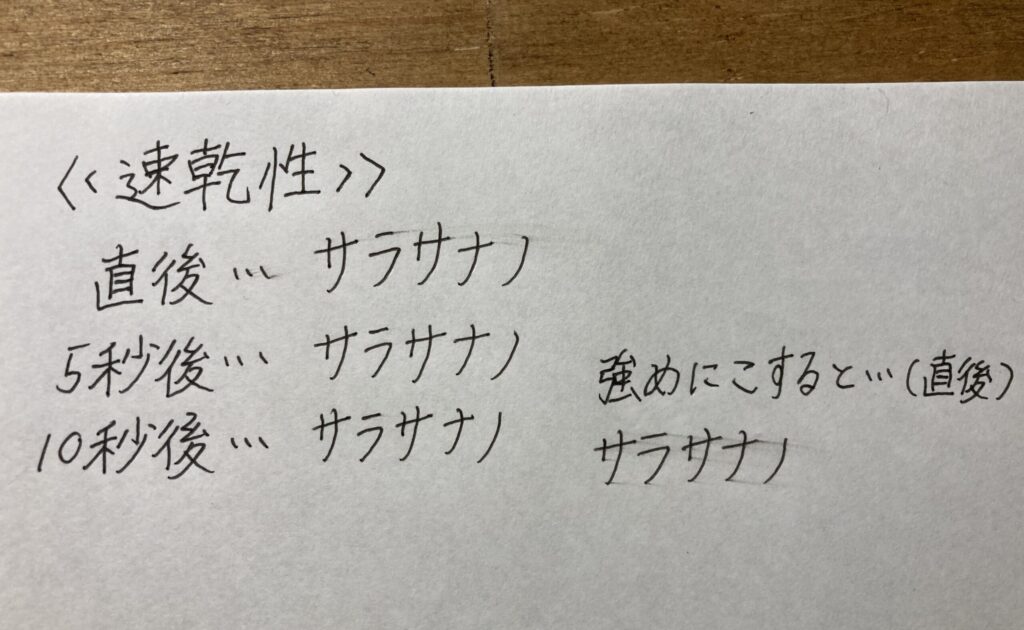 <<速乾性>>
直後… サラサナノ
5秒後… サラサナノ
10秒後… サラサナノ
強めにこすると…(直後)
サラサナノ